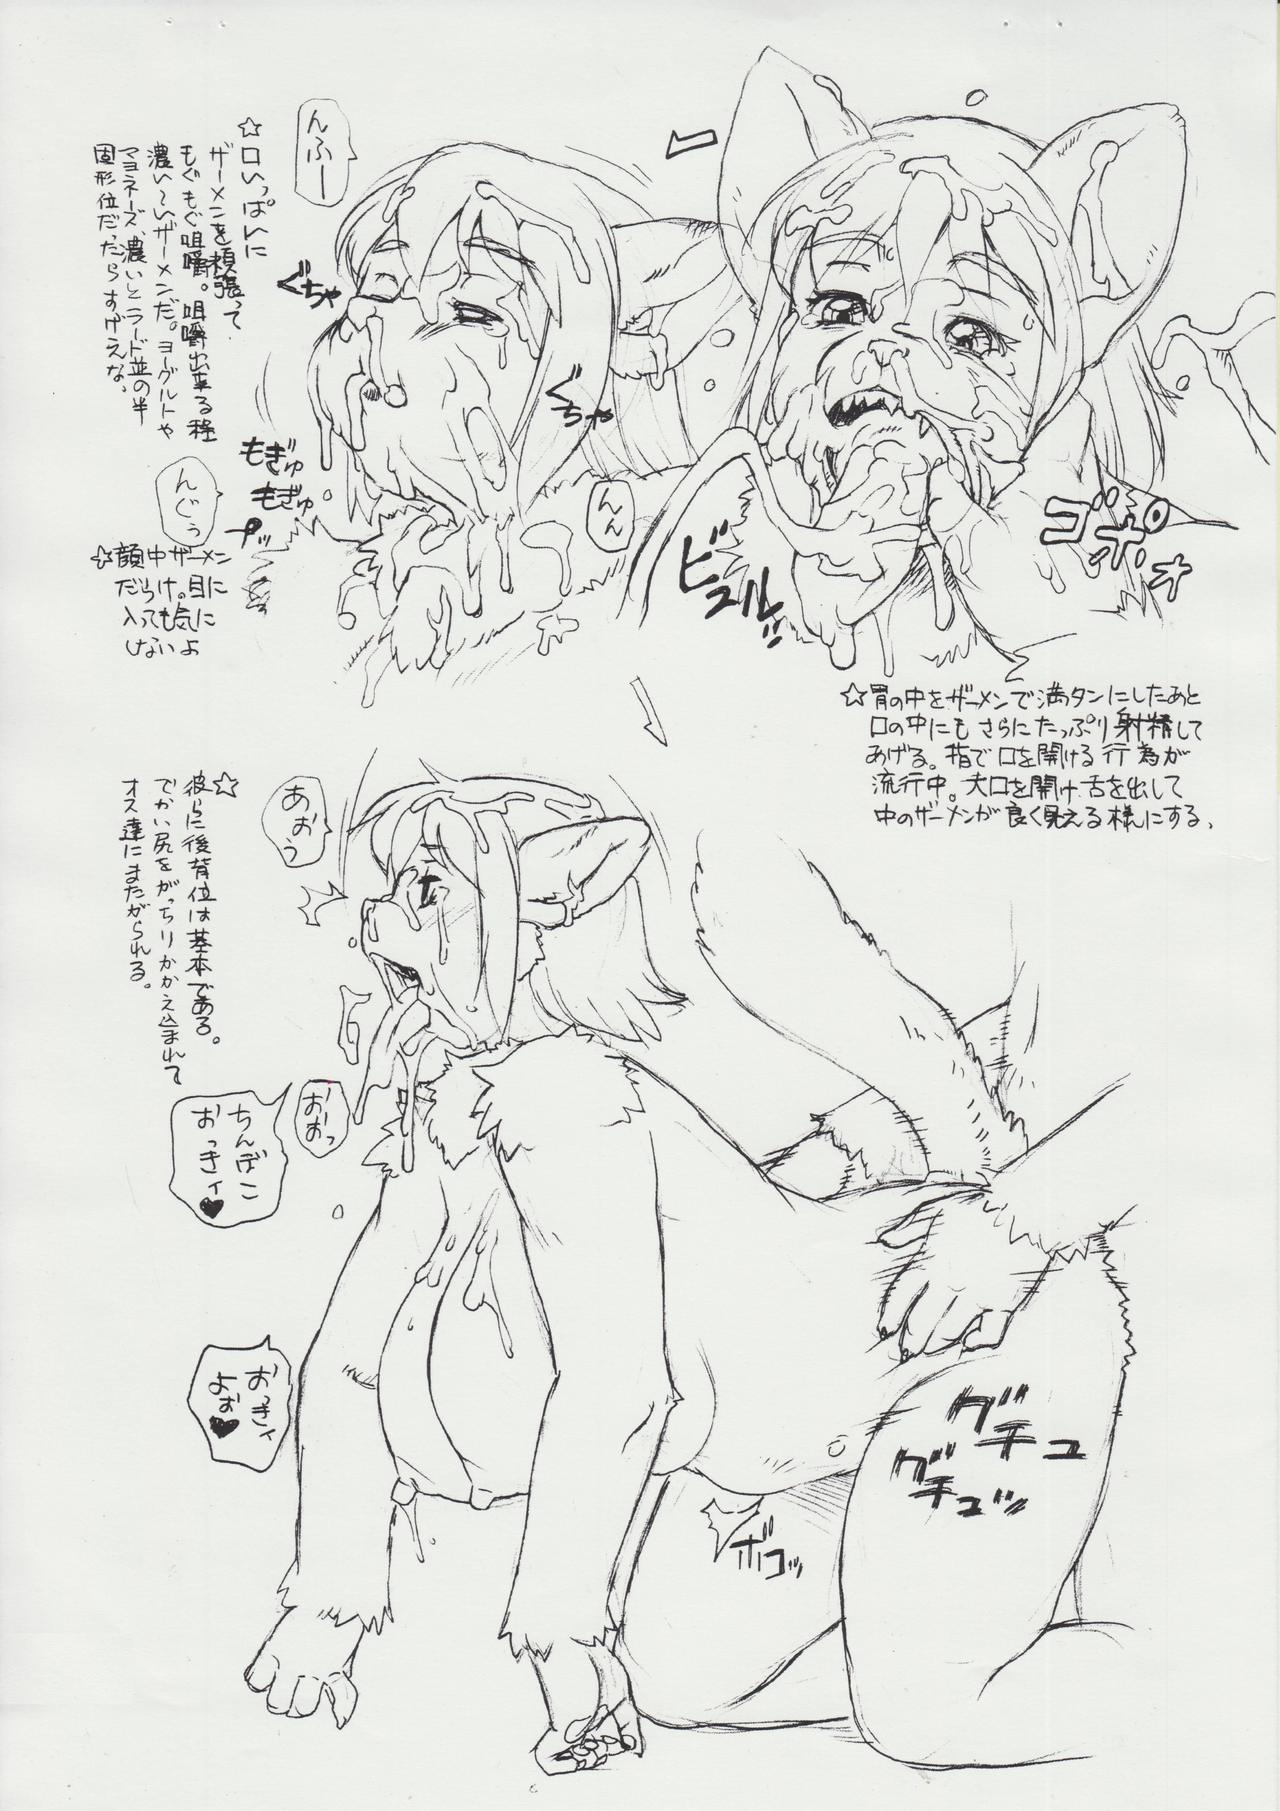 んふー
☆口いっぱいに
ザーメンを頬張って
もぐもぐ咀嚼。咀嚼出来る程
濃い〜いザーメンだ。ヨーグルトや
マヨネーズ、濃いとラード並の半
固形位だったらすげえな。
ぐちゃ
ぐちゃ
もぎゅ
もぎゅ
プッ
んぐぅ
んん
☆顔中ザーメン
だらけ。目に
入っても気に
しないよ
ビュルルッ
ゴポォ
☆胃の中をザーメンで満タンにしたあと
口の中にもさらにたっぷり射精して
あげる。指で口を開ける行為が
流行中。大口を開け舌を出して
中のザーメンが良く見える様にする。
あぉう
☆
彼らに後背位は基本である。
でかい尻をがっちりかかえ込まれて
オス達にまたがられる。
おおっ
ちんぽこ
おっきィ♥
おっきィ
よぉ♥
グチュ
グチュッ
ボコッ